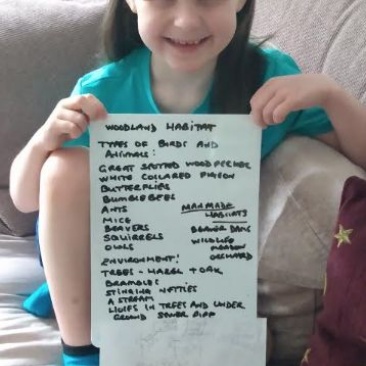 WOODLAND HABITAT
TYPES OF BIRDS AND
ANIMALS:
GREAT SPOTTED WOODPECKER
WHITE COLLARED PIGEON
BUTTERFLIES
BUMBLEBEES
ANTS
MICE
BEAVERS
SQUIRRELS
OWLS
MANMADE
HABITATS
BEAVER DAMS
WILDLIFE
MEADOW
ORCHARD
ENVIRONMENT:
TREES - HAZEL + OAK
BRAMBLES
STINGING NETTLES
A STREAM
LIVES IN TREES AND UNDER
GROUND SEWER PIPE